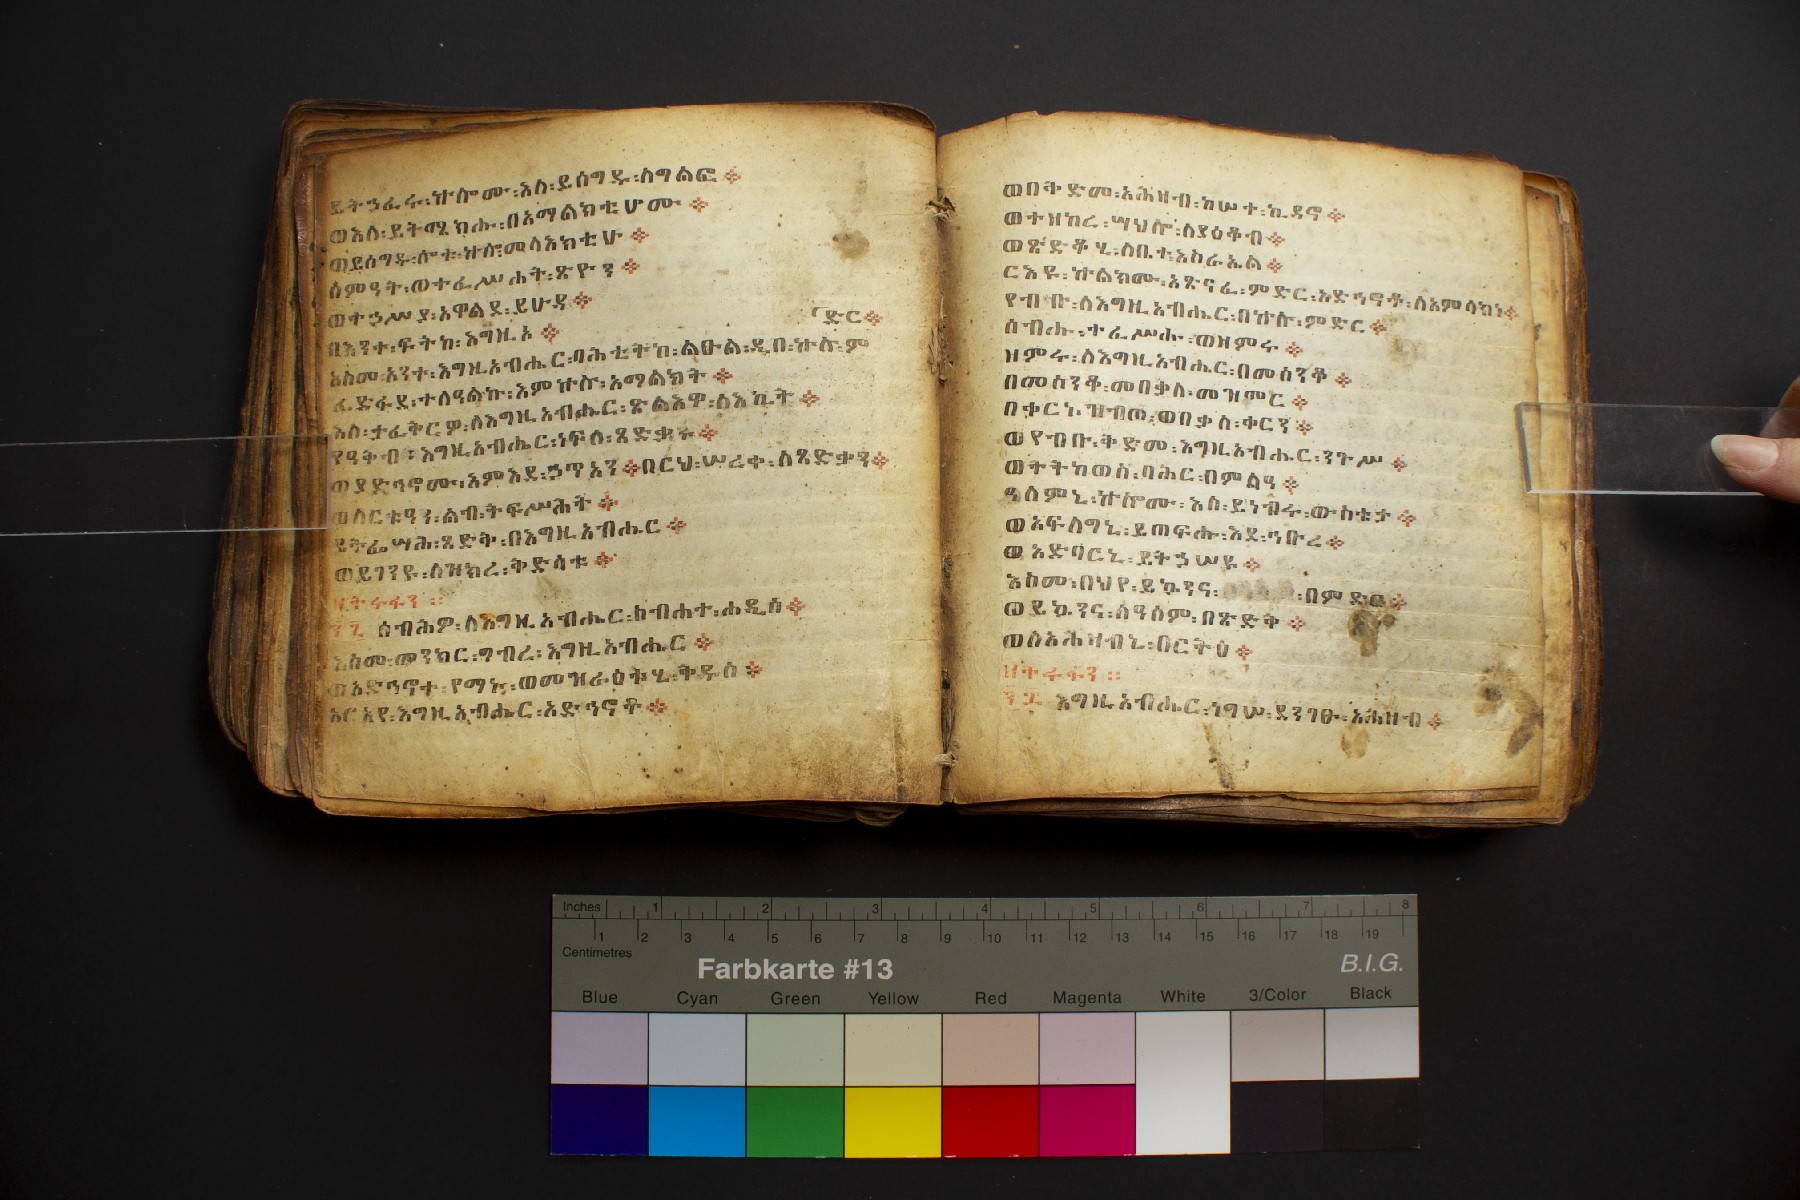 ይትኃፈሩ፡ኵሎሙ፡እለ፡ይሰግዱ፡ለግልፎ፨
ወእለ፡ይትሜክሑ፡በአማልክቲሆሙ፨
ወይሰግዱ፡ሎቱ፡ኵሎ፡መላእክቲሁ፨
ሰምዓት፡ወተፈሥሐት፡ጽዮን፨
ወተኃሥያ፡አዋልደ፡ይሁዳ፨
በእንተ፡ፍትከ፡እግዚአ፨
⸢ድር፨
እስመ፡አንተ፡እግዚአብሔር፡ባሕቲትከ፡ልዑል፡ዲበ፡ኵሉ፡ም
ፈድፋደ፡ተለዓልከ፡እምኵሉ፡አማልክት፨
እለ፡ታፈቅርዎ፡ለእግዚአብሔር፡ጽልእዋ፡ለእኪት፨
የዓቅብ፡እግዚአብሔር፡ነፍሰ፡ጻድቃኑ፨
ወያድኅኖሙ፡እምእደ፡ኃጥአን፨በርህ፡ሠረቀ፡ለጻድቃን፨
ወለርቱዓን፡ልብ፡ትፍሥሕት፨
ይትፌሣሕ፡ጻድቅ፡በእግዚአብሔር፨
ወይገንዩ፡ለዝክረ፡ቅድሳቱ፨
ዘትሩፋን፡፡
፺፯ ሰብሕዎ፡ለእግዚአብሔር፡ስብሐተ፡ሐዲሰ፨
እስመ፡መንክር፡ግብረ፡እግዚአብሔር፨
ወአድኅኖተ፡የማኑ፡ወመዝራዕትሂ፡ቅዱስ፨
አርአየ፡እግዚአብሔር፡አድኅኖቶ፨
ወበቅድመ፡አሕዛብ፡ከሠተ፡ኪዳኖ፨
ወተዘከረ፡ሣህሎ፡ለያዕቆብ፨
ወጽድቆሂ፡ለቤተ፡እስራኤል፨
ርእዩ፡ኵልክሙ፡አጽናፈ፡ምድር፡አድኅኖቶ፡ለአምላክነ፨
የብቡ፡ለእግዚአብሔር፡በኵሉ፡ምድር፨
ሰብሑ፡ተፈሥሑ፡ወዘምሩ፨
ዘምሩ፡ለእግዚአብሔር፡በመሰንቆ፨
በመሰንቆ፡መበቃለ፡መዝሙር፨
በቀርነ፡ዝብጦ፡ወበቃለ፡ቀርን፨
ወየብቡ፡ቅድመ፡እግዚአብሔር፡ንጉሥ፨
ወትትከወስ፡ባሕር፡በምልዓ፨
ዓለምኒ፡ኵሎሙ፡እለ፡ይነብሩ፡ውስቴታ፨
ወአፍላግኒ፡ይጠፍሑ፡እደ፡ኅቡረ፨
ወአድባርኒ፡ይትኃሠዩ፨
እስመ፡በህየ፡ይኴንና፡ በምድወ፨
ወይኴንና፡ለዓለም፡በጽድቅ፨
ወለአሕዛብኒ፡በርትዕ፨
ዘትሩፋን፡፡
፺፰ እግዚአብሔር፡ነግሠ፡ደንገፁ፡አሕዛብ፨
Inches 1 2 3 4 5 6 7 8
1 2 3 4 5 6 7 8 9 10 11 12 13 14 15 16 17 18 19
Centimetres
Farbkarte #13 B.I.G.
Blue Cyan Green Yellow Red Magenta White 3/Color Black